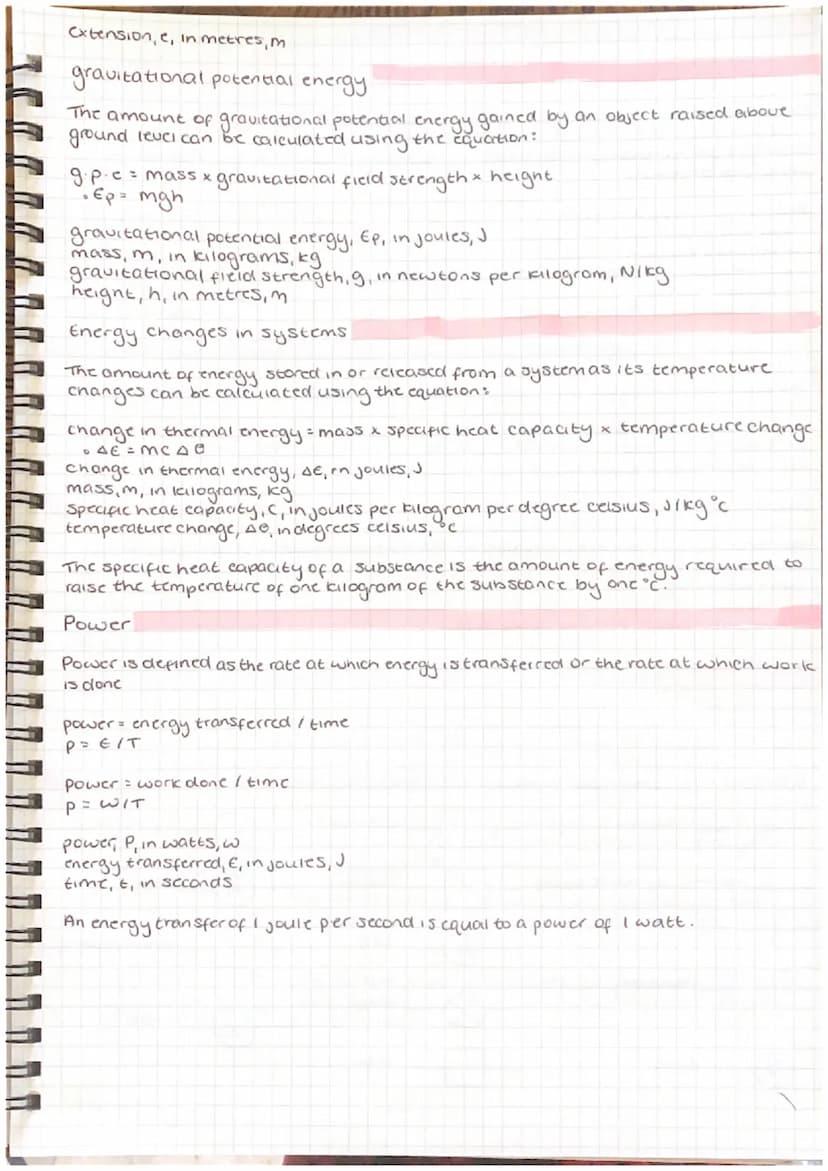 extension, e, in metres, m
gravitational potential energy
The amount of gravitational potential energy gained by an object raised above
ground level can be calculated using the equation:
g.p.e = mass x gravitational field strength x height
• Ep = mgh
gravitational potential energy, Ep, in joules, J
mass, m, in kilograms, kg
gravitational field strength, g, in newtons per kilogram, N/kg
height, h, in metres, m
Energy changes in systems
The amount of energy stored in or released from a system as its temperature
changes can be calculated using the equation:
change in thermal energy = mass x specific heat capacity x temperature change
• ΔE = mcΔθ
change in thermal energy, ΔE, in joules, J
mass, m, in kilograms, kg
specific heat capacity, c, in joules per kilogram per degree celsius, J/kg °c
temperature change, Δθ, in degrees celsius, °c
The specific heat capacity of a substance is the amount of energy required to
raise the temperature of one kilogram of the substance by one °c.
Power
Power is defined as the rate at which energy is transferred or the rate at which work
is done
power = energy transferred / time
P = E/T
power = work done / time
P = W/T
power, P, in watts, w
energy transferred, E, in joules, J
time, t, in seconds
An energy transfer of 1 joule per second is equal to a power of 1 watt.